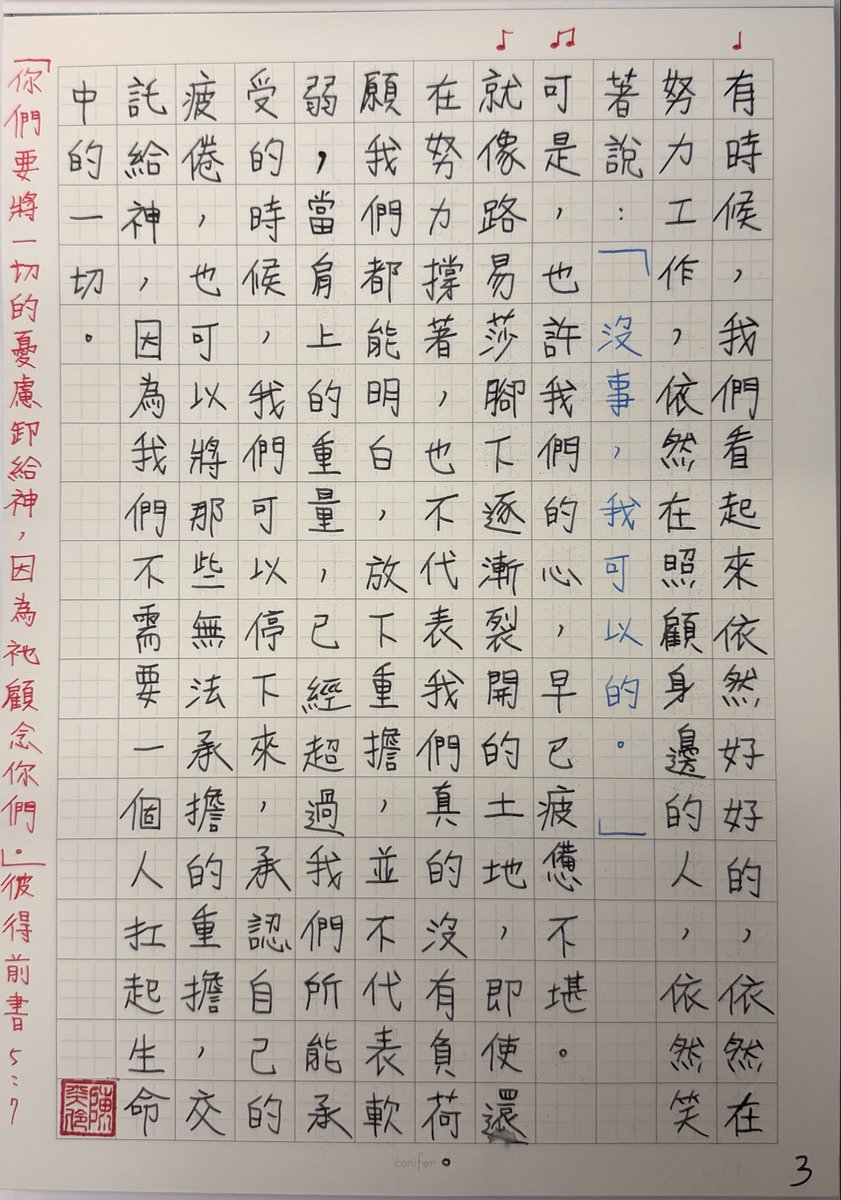 有時候,我們看起來依然好好的,依然在
努力工作,依然在照顧身邊的人,依然笑
著說:「沒事,我可以的。」
可是,也許我們的心,早已疲憊不堪。
就像路易莎腳下逐漸裂開的土地,即使還
在努力撐著,也不代表我們真的沒有負荷
願我們都能明白,放下重擔,並不代表軟
弱,當肩上的重量,已經超過我們所能承
受的時候,我們可以停下來,承認自己的
疲倦,也可以將那些無法承擔的重擔,交
託給神,因為我們不需要一個人扛起生命
中的一切。
「你們要將一切的憂慮卸給神,因為祂顧念你們。」彼得前書5:7
conifer
3